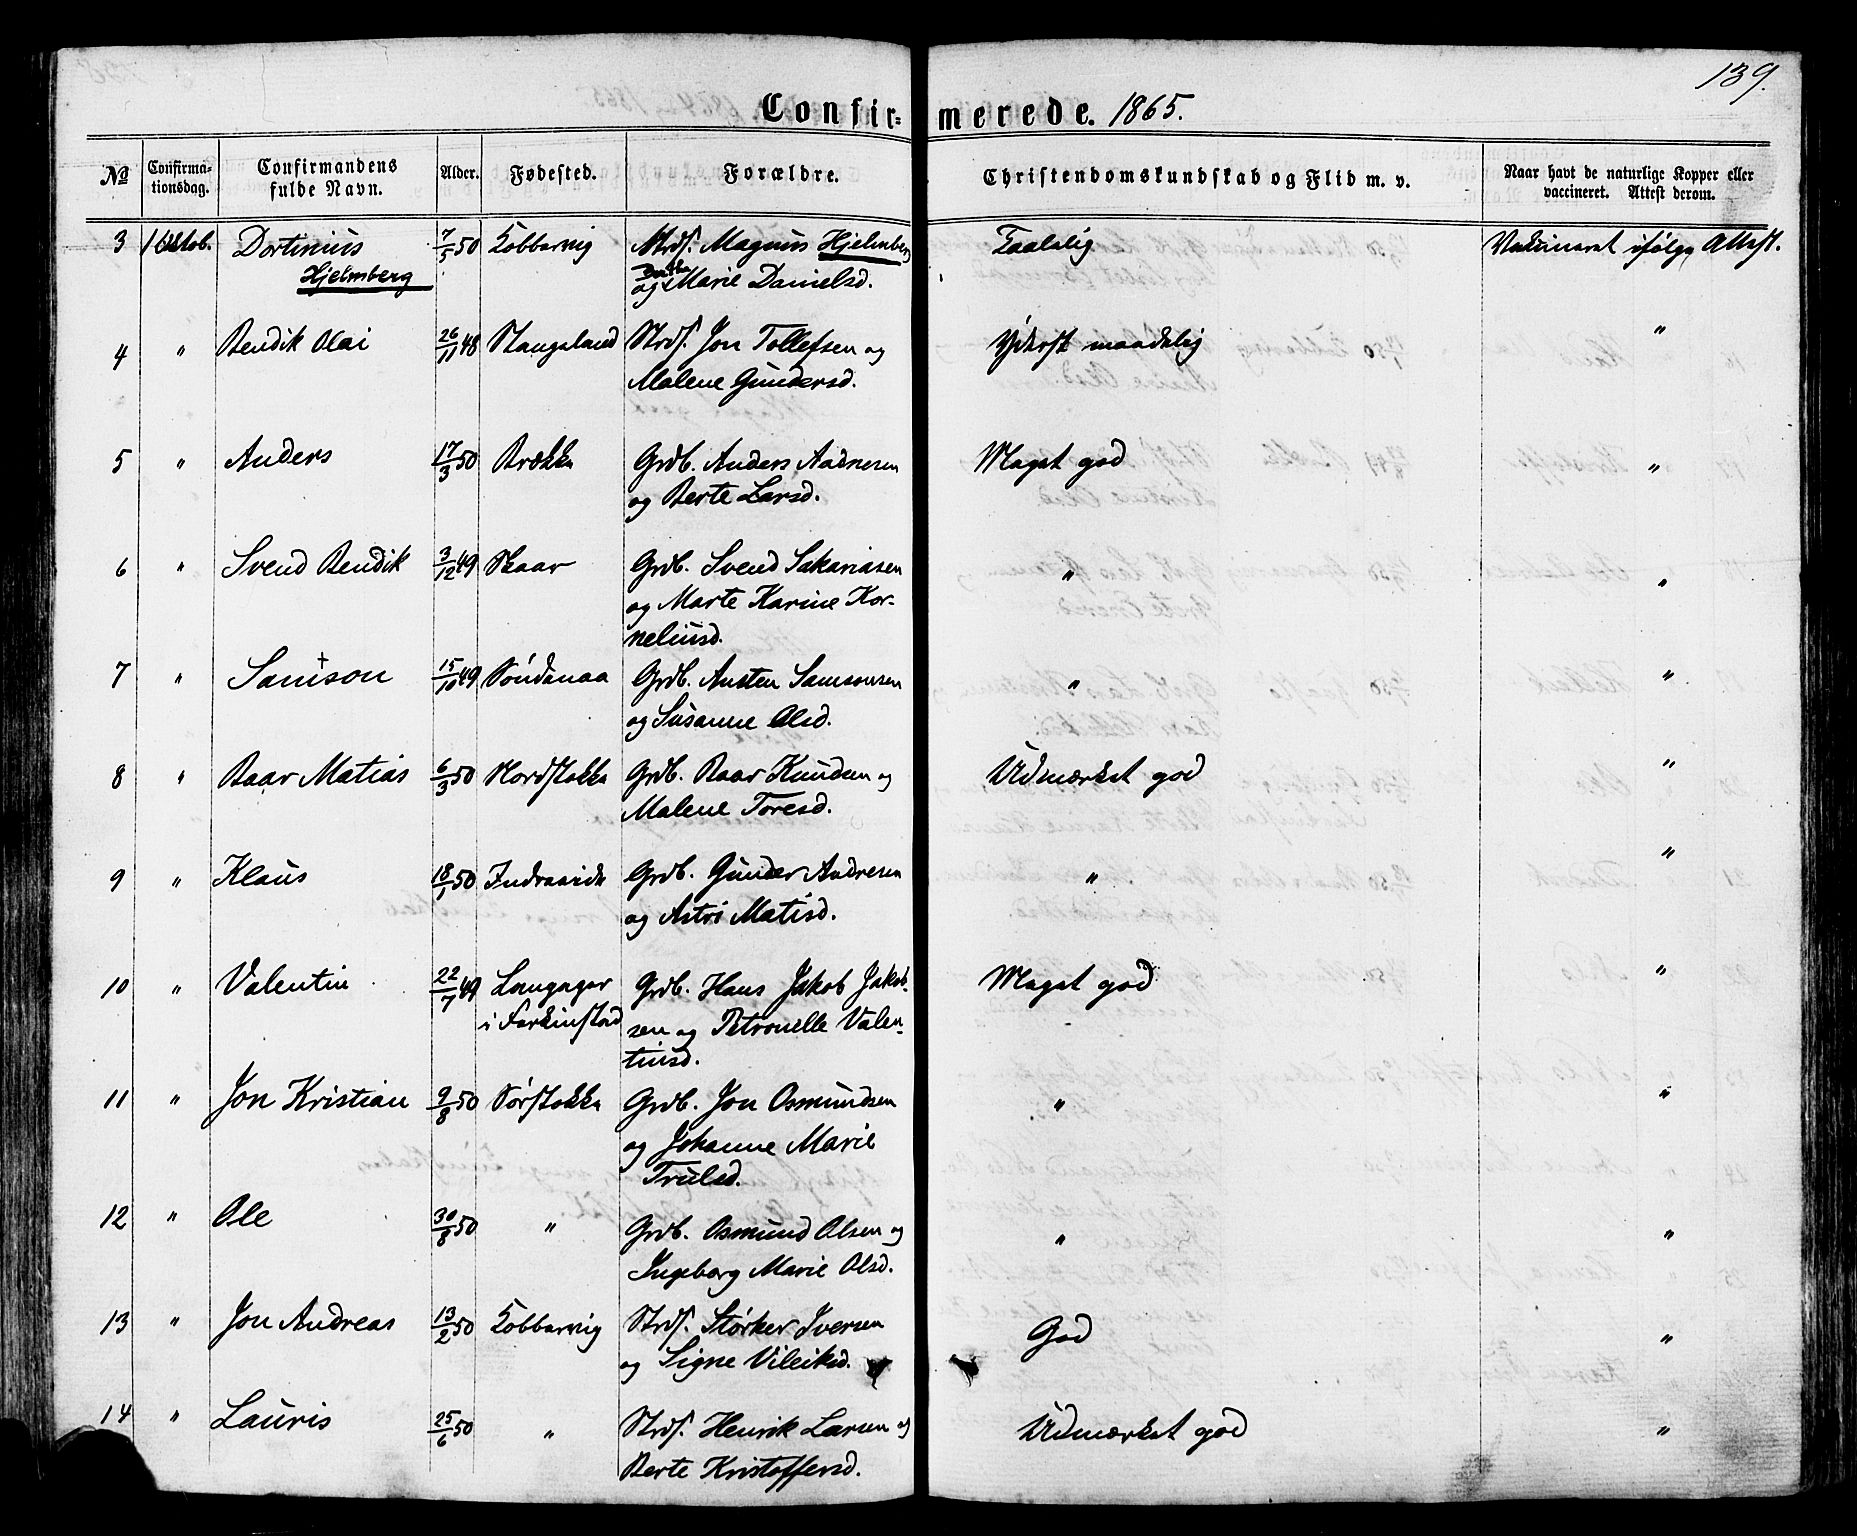 139.
Confir- merede. 1865.
No Confirma-tionsdag. Confirmandens fulde Navn. Alder. Fødested. Forældre. Christendomskundskab og Flid m. v. Naar havt de naturlige Kopper eller vaccineret. Attest derom.
3 1 Oktob. Dortinius 7/5 50 Kobbervig Strds. Magnus Hjelmberg Taalelig Vakcineret ifølge Attest.
Hjelmberg og Marie Danielsd.
4 " Bendik Olai 26/11 48 Stangeland Strds. Jon Tollefsen og Yderst maadelig "
Malene Gundersd.
5 " Anders 17/3 50 Brekke Grdb. Anders Aadnesen Meget god "
og Berte Larsd.
6 " Svend Bendik 3/12 49 Skaar Grdb. Svend Sakariasen " "
og Marte Karine Kor-
neliusd.
7 " Samson + 15/10 49 Søndenaa Grdb. Austen Samsonsen " "
og Susanne Olsd.
8 " Baar Matias 6/3 50 Nordstokke Grdb. Baar Knudsen og Udmerket god "
Malene Toresd.
9 " Klaus 18/1 50 Indrevide Grdb. Gunder Andresen " "
og Astri Matisd.
10 " Valentin 22/7 49 Langager Grdb. Hans Jakob Jakob- Meget god "
i Ferkinstad sen og Petronelle Valen-
tinsd.
11 " Jon Kristian 9/8 50 Sørstokke Grdb. Jon Osmundsen " "
og Johanne Marie
Trulsd.
12 " Ole 30/8 50 " Grdb. Osmund Olsen og " "
Ingeborg Marie Olsd.
13 " Jon Andreas 13/2 50 Kobbervig Strds. Størker Iversen God "
og Signe Vileiksd.
14 " Lauris 25/6 50 " Strds. Henrik Larsen og Udmerket god "
Berte Kristoffersd.